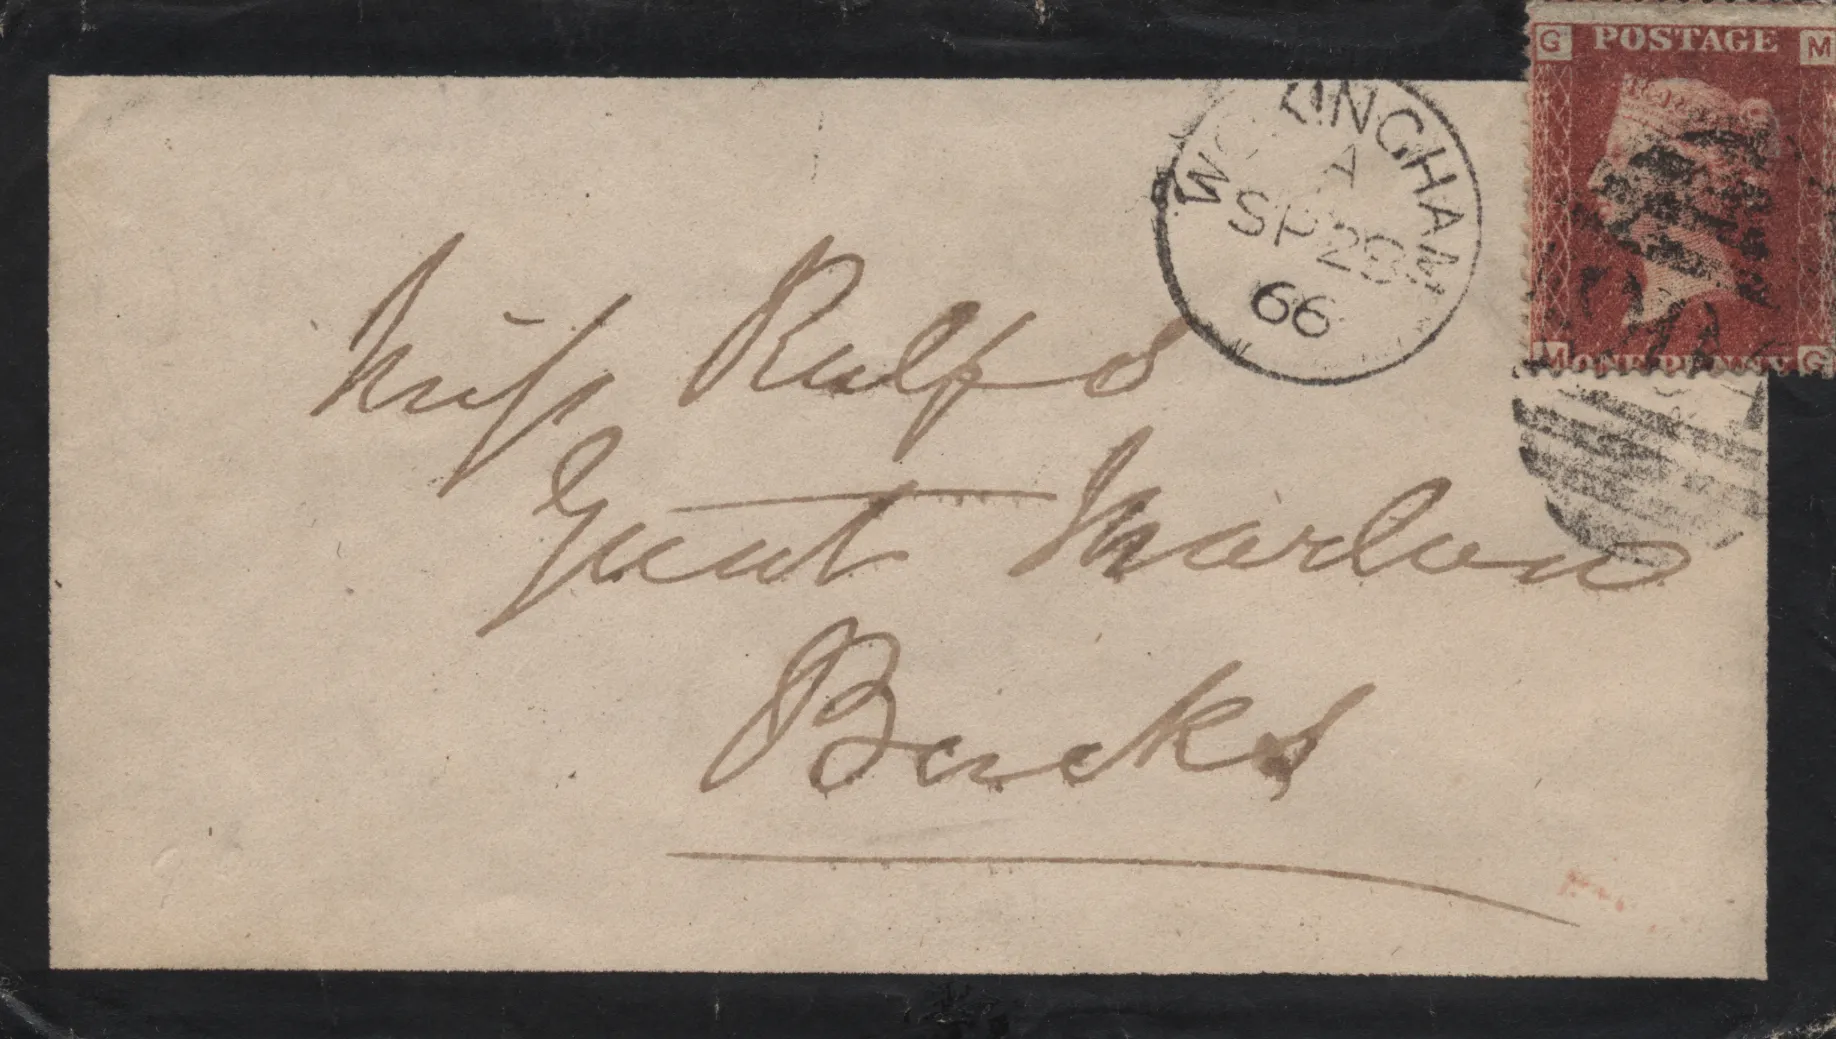 G POSTAGE M
M ONE PENNY G
WOKINGHAM
A
SP 28
66
Miss Rolfe
Great Marlow
Bucks